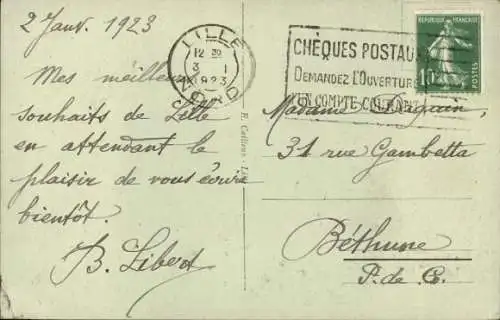 2 Janv. 1923
Mes meilleurs
souhaits de Lille
en attendant le
plaisir de vous écrire
bientôt.
B. Libert
LILLE
12
3 - 1
1923
NORD
CHÈQUES POSTAUX
DEMANDEZ L'OUVERTURE
D'UN COMPTE COURANT
REPUBLIQUE FRANÇAISE
10
POSTES
E. Cailteux
Madame
31 rue Gambetta
Béthune
P. de C.